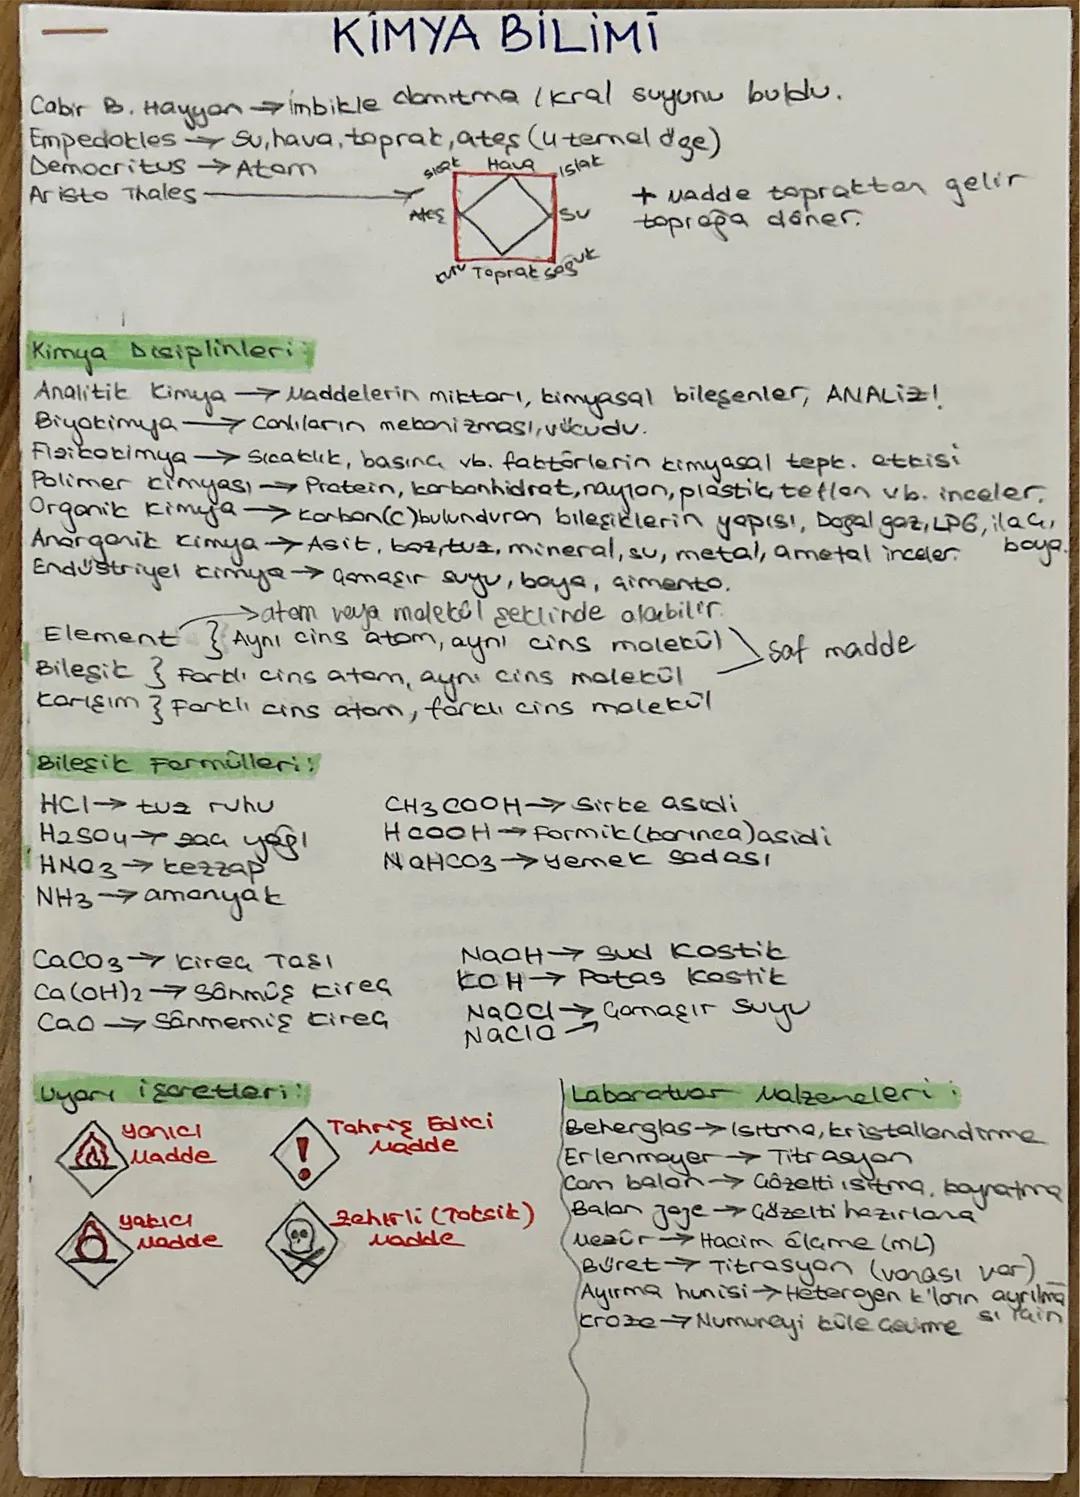 KİMYA BİLİMİ
Cabir B. Hayyan → imbikle damıtma / kral suyunu buldu.
Empedokles → Su, hava, toprak, ateş (4 temel öge)
Democritus → Atom
Aristo Thales →
sıcak Hava ıslak
Ateş Su
kuru Toprak soğuk
+ Madde topraktan gelir
toprağa döner.
Kimya Disiplinleri:
Analitik Kimya → Maddelerin miktarı, kimyasal bileşenler, ANALİZ!
Biyokimya → Canlıların mekanizması, vücudu.
Fizikokimya → Sıcaklık, basınç vb. faktörlerin kimyasal tepk. etkisi
Polimer kimyası → Protein, karbonhidrat, naylon, plastik, teflon vb. inceler.
Organik Kimya → Karbon(C) bulunduran bileşiklerin yapısı, Doğal gaz, LPG, ilaç, boya.
Anorganik Kimya → Asit, baz, tuz, mineral, su, metal, ametal inceler.
Endüstriyel kimya → Çamaşır suyu, boya, çimento.
→ atom veya molekül şeklinde olabilir.
Element } Aynı cins atom, aynı cins molekül
Bileşik } Farklı cins atom, aynı cins molekül
saf madde
Karışım } Farklı cins atom, farklı cins molekül
Bileşik Formülleri:
HCl → tuz ruhu
H2SO4 → zaç yağı
HNO3 → kezzap
NH3 → amonyak
CH3COOH → Sirke asidi
HCOOH → Formik (karınca) asidi
NaHCO3 → yemek sodası
CaCO3 → Kireç Taşı
Ca(OH)2 → Sönmüş kireç
CaO → Sönmemiş kireç
NaOH → Sud Kostik
KOH → Potas Kostik
NaOCl → Çamaşır suyu
NaClO →
Uyarı işaretleri:
Yanıcı
Madde
Tahriş Edici
Madde
Yakıcı
Madde
Zehirli (Toksik)
Madde
Laboratuar Malzemeleri:
Beherglas → Isıtma, kristallendirme
Erlenmayer → Titrasyon
Cam balon → Çözelti ısıtma, kaynatma
Balon joje → Çözelti hazırlama
Mezür → Hacim ölçme (mL)
Büret → Titrasyon (vanası var)
Ayırma hunisi → Heterojen k'ların ayrılması için
Kroze → Numuneyi küle çevirme